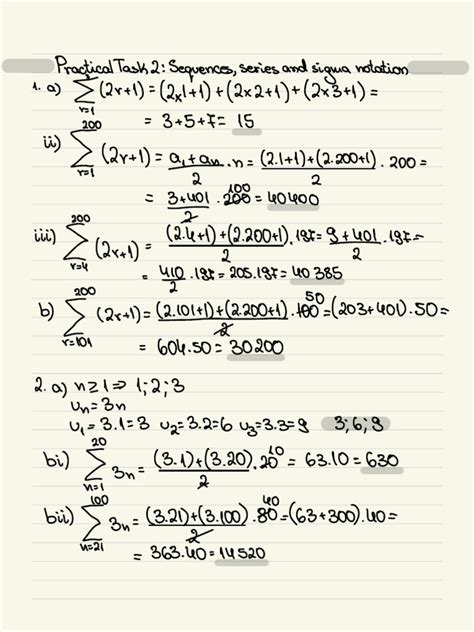 Practical Task 2: Sequences, series and sigma notation
1. a) ∑_{r=1} (2r+1) = (2x1+1) + (2x2+1) + (2x3+1) =
= 3+5+7 = 15
ii) ∑_{r=1}^{200} (2r+1) = (a₁+aₙ)/2 · n = ((2.1+1)+(2.200+1))/2 · 200 =
= (3+401)/2 · 200 100 = 40400
iii) ∑_{r=4}^{200} (2r+1) = ((2.4+1)+(2.200+1))/2 · 197 = (9+401)/2 · 197 =
= 410/2 · 197 = 205.197 = 40 385
b) ∑_{r=101}^{200} (2r+1) = ((2.101+1)+(2.200+1))/2 · 100 50 = (203+401) · 50 =
= 604.50 = 30200
2. a) n≥1 ⇒ 1; 2; 3
uₙ = 3n
u₁ = 3.1 = 3 u₂ = 3.2 = 6 u₃ = 3.3 = 9 3; 6; 9
bi) ∑_{n=1}^{20} 3n = ((3.1)+(3.20))/2 · 20 10 = 63.10 = 630
bii) ∑_{n=21}^{100} 3n = ((3.21)+(3.100))/2 · 80 40 = (63+300) · 40 =
= 363.40 = 14520